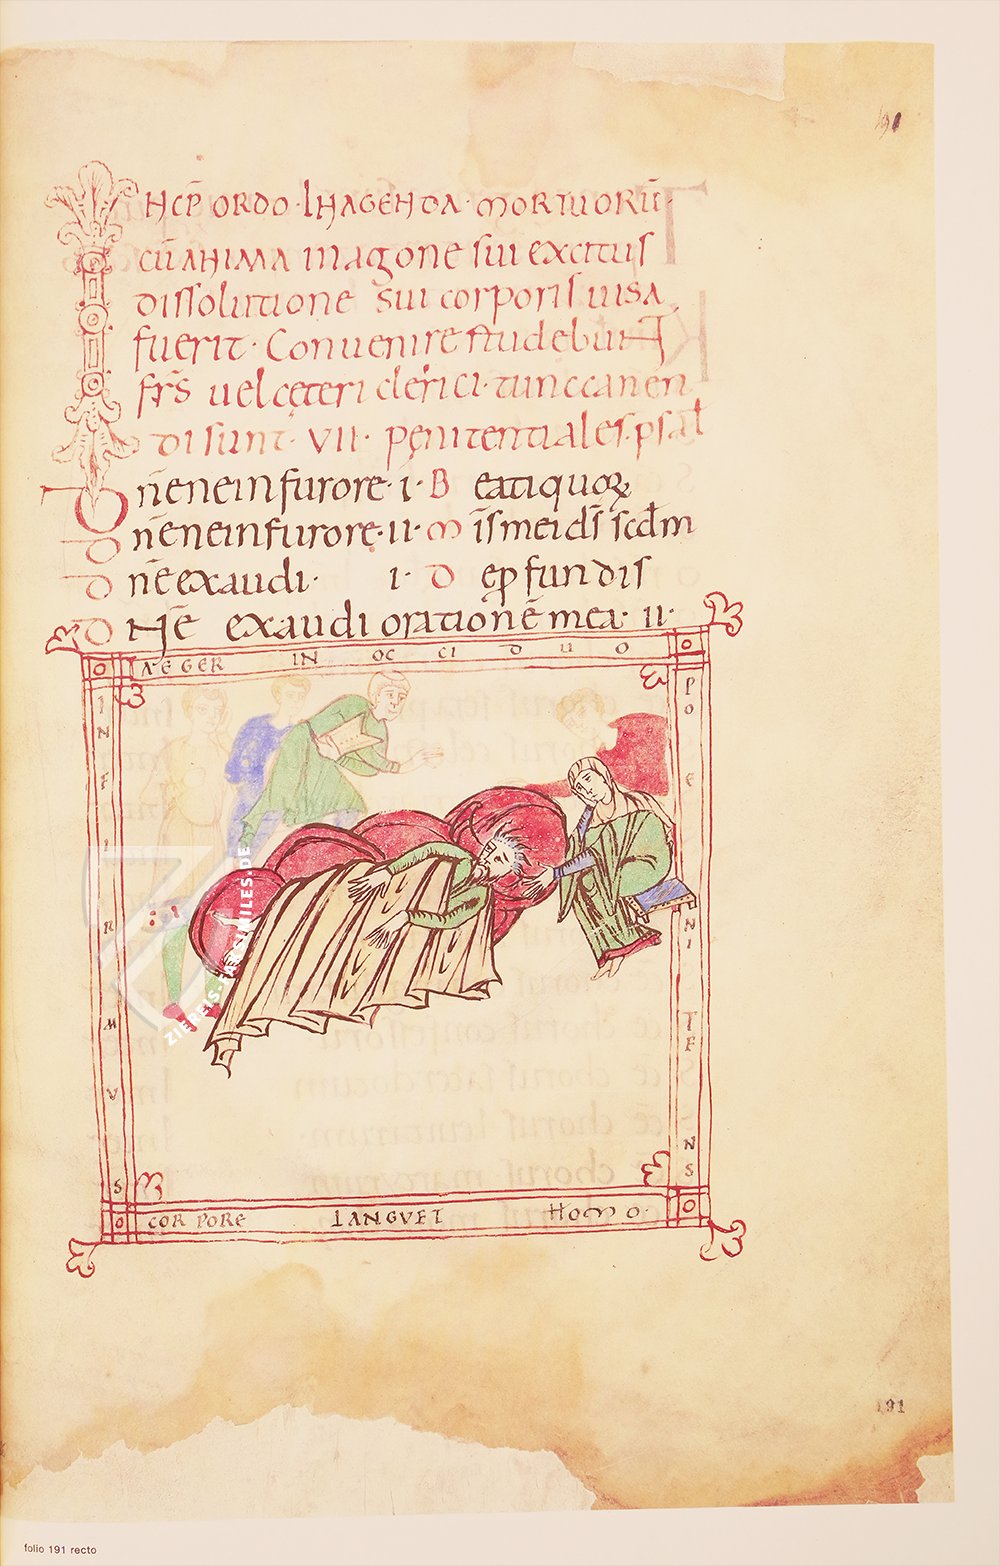 191
INCP̄ ORDO · IN AGENDA · MORTUORŪ ·
CŪ ANIMA IN agone sui exitus
dissolutione sui corporis uisa
fuerit · Conuenire studebunt
fr̄s uel cęteri clerici · tunc canen
di sunt · VII · pęnitentiales · psal̄
D n̄e ne in furore · i · B eati quoꝝ
D n̄e ne in furore · ii · M is̄ mei ds̄ scd̄m
D n̄e exaudi · i · D e ꝓfundis
D N̄e exaudi oration̄e mea · ii ·
AEGER IN OCCIDUO
INFIRMUS
PO E NI TE NS
CORPORE LANGUET HOMO ·
ZIEREIS-FAKSIMILES.DE
191
folio 191 recto